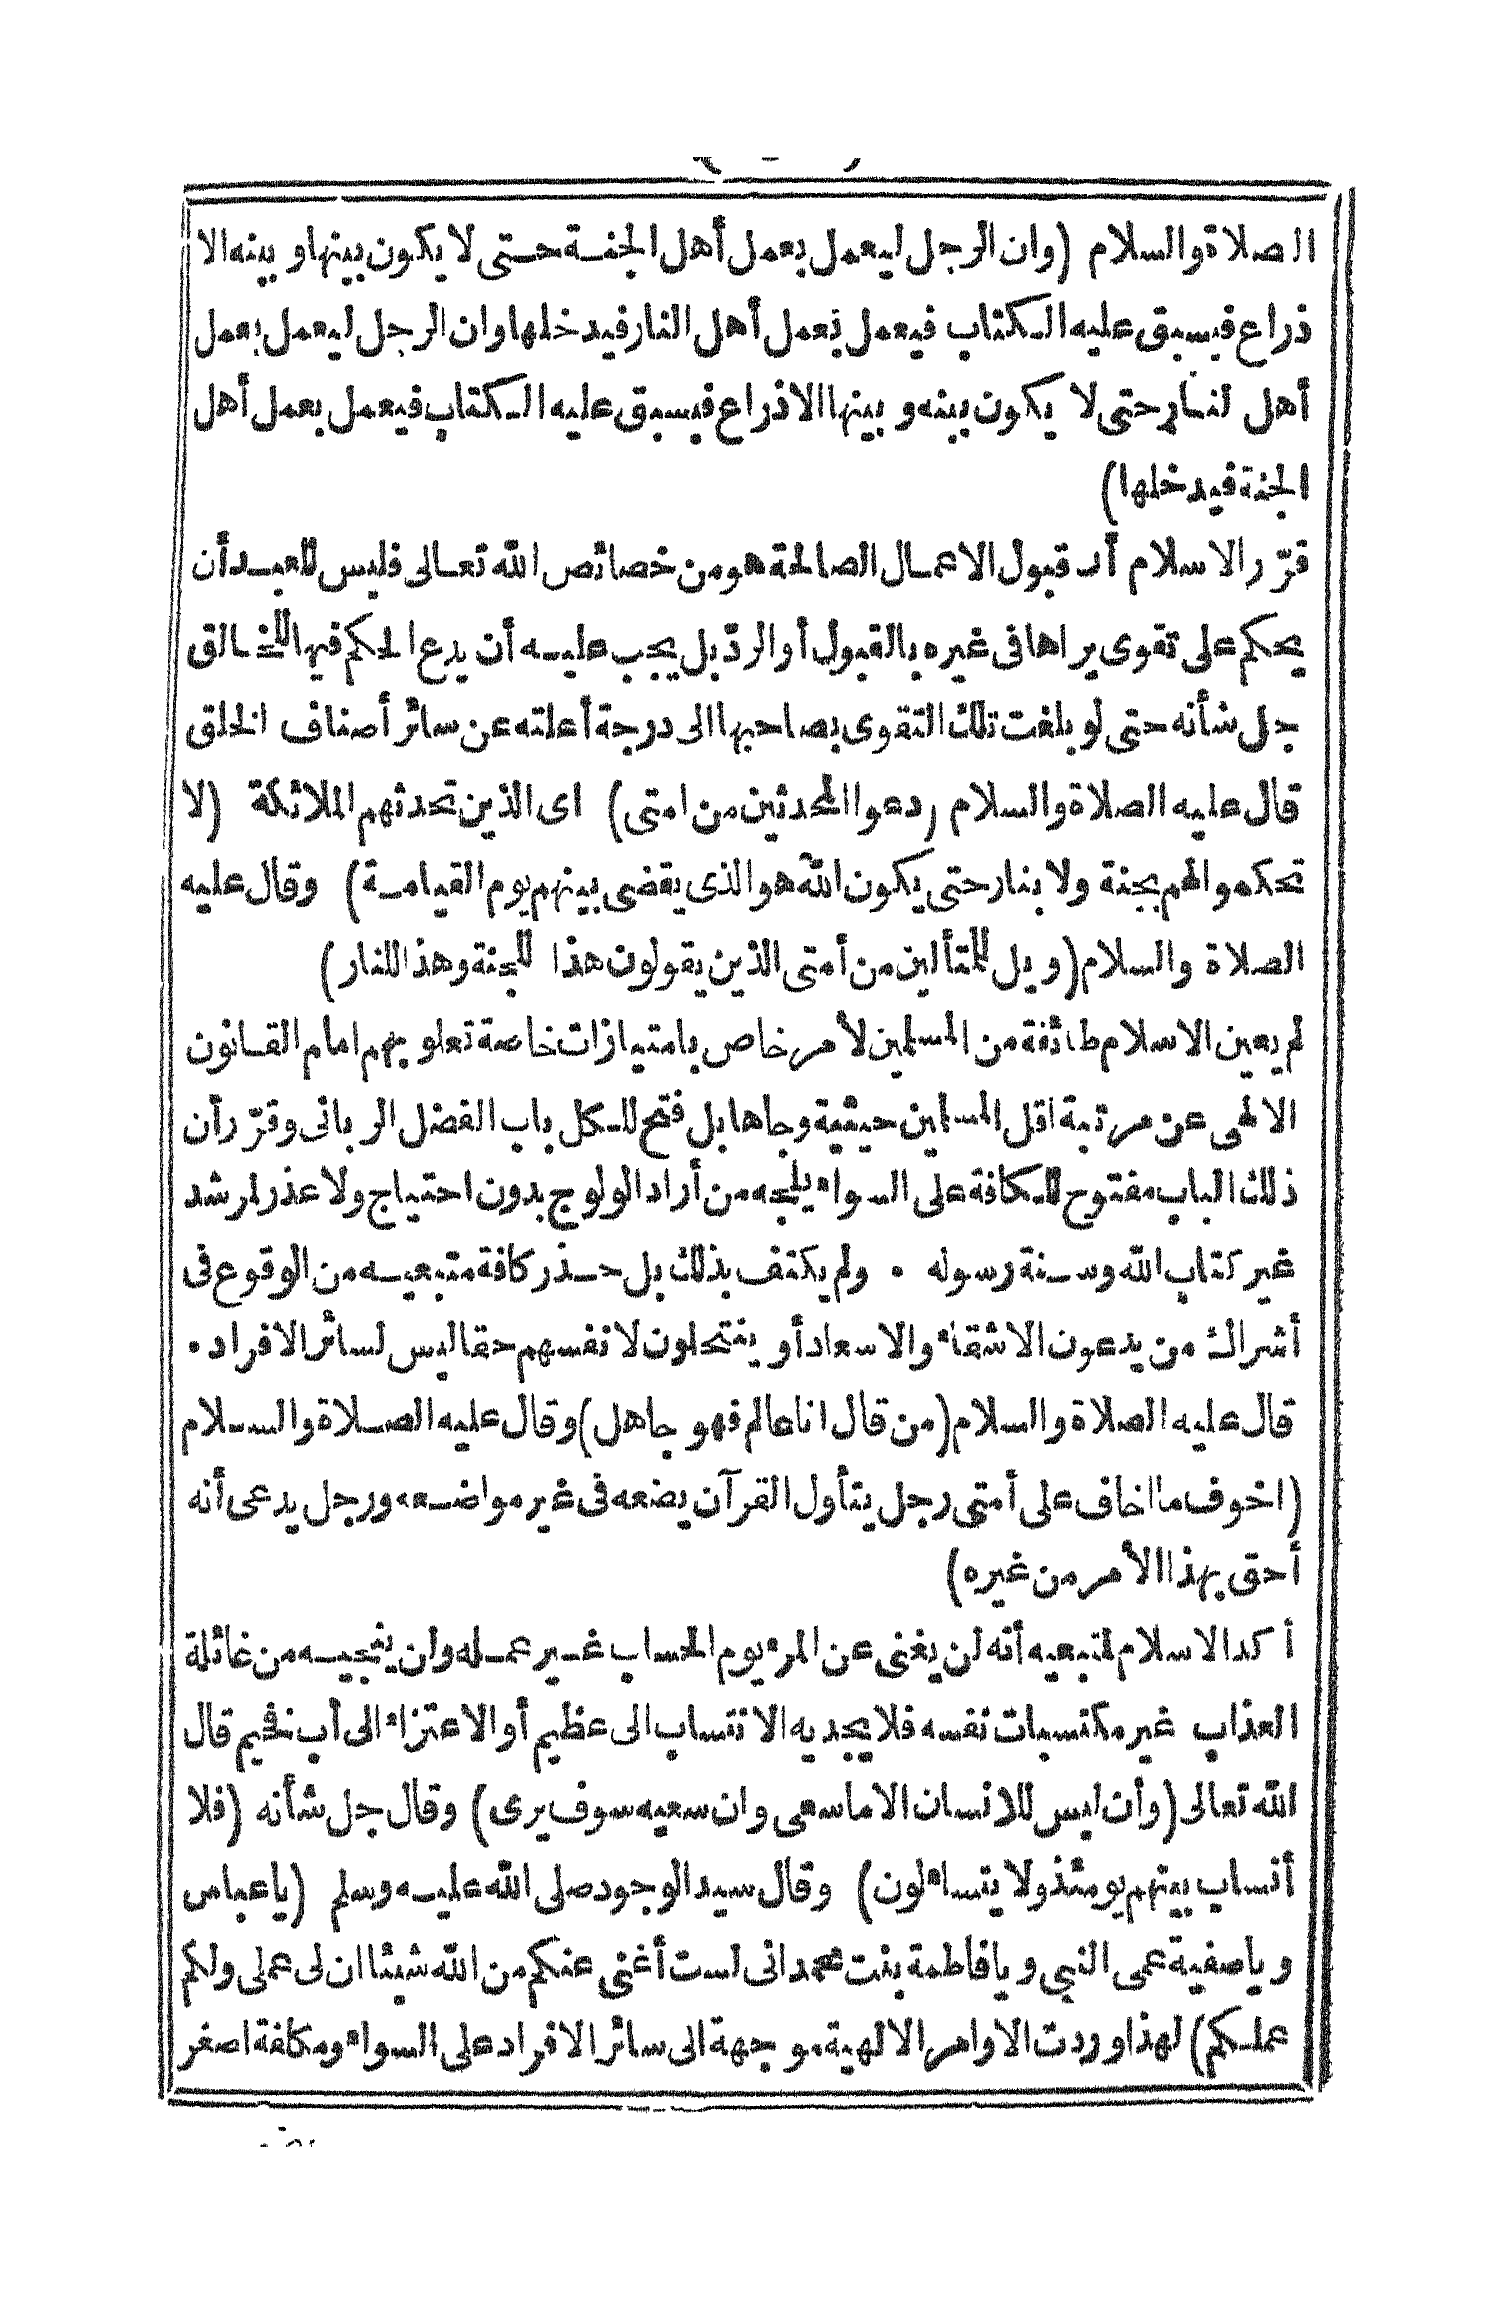 الصلاة والسلام (وان الرجل ليعمل بعمل أهل الجنة حتى لا يكون بينها وبينه الا
ذراع فيسبق عليه الكتاب فيعمل بعمل أهل النار فيدخلها وان الرجل ليعمل بعمل
أهل لنار حتى لا يكون بينه وبينها الا ذراع فيسبق عليه الكتاب فيعمل بعمل أهل
الجنة فيدخلها)
قرّر الاسلام أن قبول الاعمال الصالحة هو من خصائص الله تعالى فليس للعبد أن
يحكم على تقوى يراها فى غيره بالقبول أو الردّ بل يجب عليه أن يدع الحكم فيها للخالق
جل شأنه حتى لو بلغت تلك التقوى بصاحبها الى درجة أعلته عن سائر أصناف الخلق
قال عليه الصلاة والسلام (دعوا المحدثين من امتى) اى الذين تحدثهم الملائكة (لا
تحكموا لهم بجنة ولا بنار حتى يكون الله هو الذى يقضى بينهم يوم القيامة) وقال عليه
الصلاة والسلام (ويل للمتألين من أمتى الذين يقولون هذا للجنة وهذا للنار)
لم يعين الاسلام طائفة من المسلمين لأمر خاص بامتيازات خاصة تعلو بهم امام القانون
الالهى عن مرتبة اقل المسلمين حيثية وجاها بل فتح للكل باب الفضل الربانى وقرّر أن
ذلك الباب مفتوح للكافة على السواء يلجه من أراد الولوج بدون احتياج ولا عذر لمرشد
غير كتاب الله وسنة رسوله . ولم يكتف بذلك بل حذر كافة متبعيه من الوقوع فى
أشراك من يدعون الاشقاء والاسعاد أو ينتحلون لانفسهم حقا ليس لسائر الافراد .
قال عليه الصلاة والسلام (من قال انا عالم فهو جاهل) وقال عليه الصلاة والسلام
(اخوف ما اخاف على أمتى رجل يتأول القرآن يضعه فى غير مواضعه ورجل يدعى أنه
أحق بهذا الأمر من غيره)
أكد الاسلام لمتبعيه أنه لن يغنى عن المرء يوم الحساب غير عمله ولن ينجيه من غائلة
العذاب غير مكتسبات نفسه فلا يجديه الانتساب الى عظيم أو الاعتزاء الى أب فخيم قال
الله تعالى (وأن ليس للانسان الا ما سعى وان سعيه سوف يرى) وقال جل شأنه (فلا
أنساب بينهم يومئذ ولا يتساءلون) وقال سيد الوجود صلى الله عليه وسلم (يا عباس
ويا صفية عمى النبي ويا فاطمة بنت محمد انى لست أغنى عنكم من الله شيئا ان لى عملى ولكم
عملكم) لهذا وردت الاوامر الالهية موجهة الى سائر الافراد على السواء ومكافة اصغر